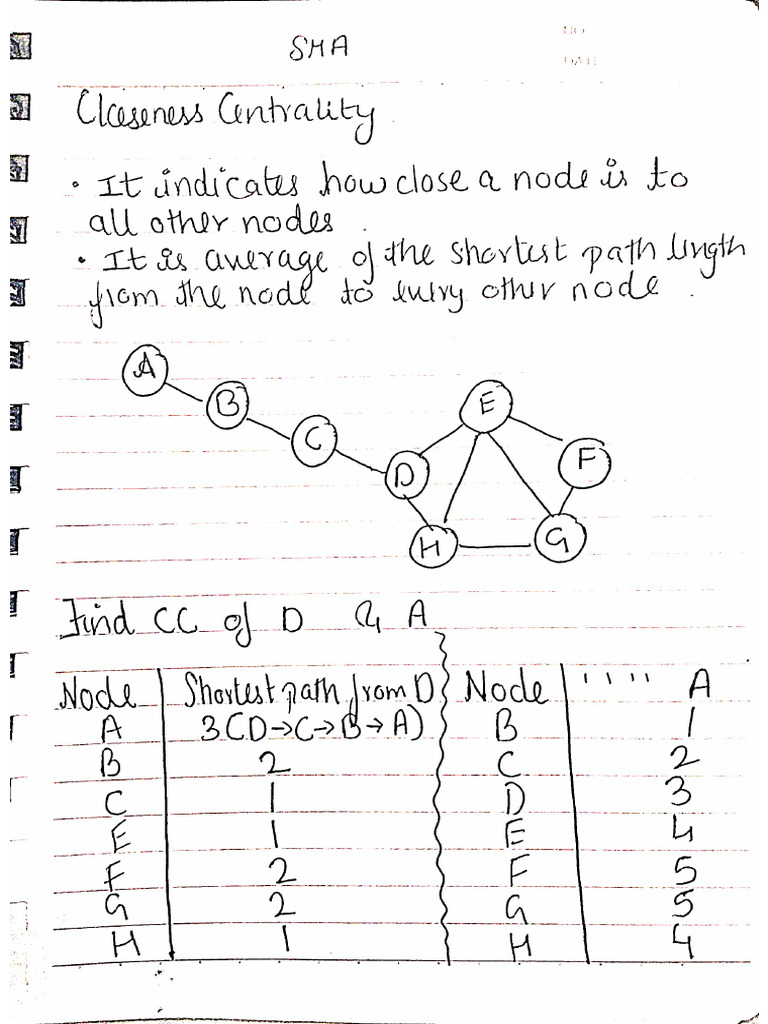 SMA
NO.
DATE
Closeness Centrality
• It indicates how close a node is to
all other nodes.
• It is average of the shortest path length
from the node to every other node.
A
B
C
D
E
F
G
H
Find CC of D & A
Node | Shortest path from D | Node | " " A
A 3(D→C→B→A) B 1
B 2 C 2
C 1 D 3
E 1 E 4
F 2 F 5
G 2 G 5
H 1 H 4